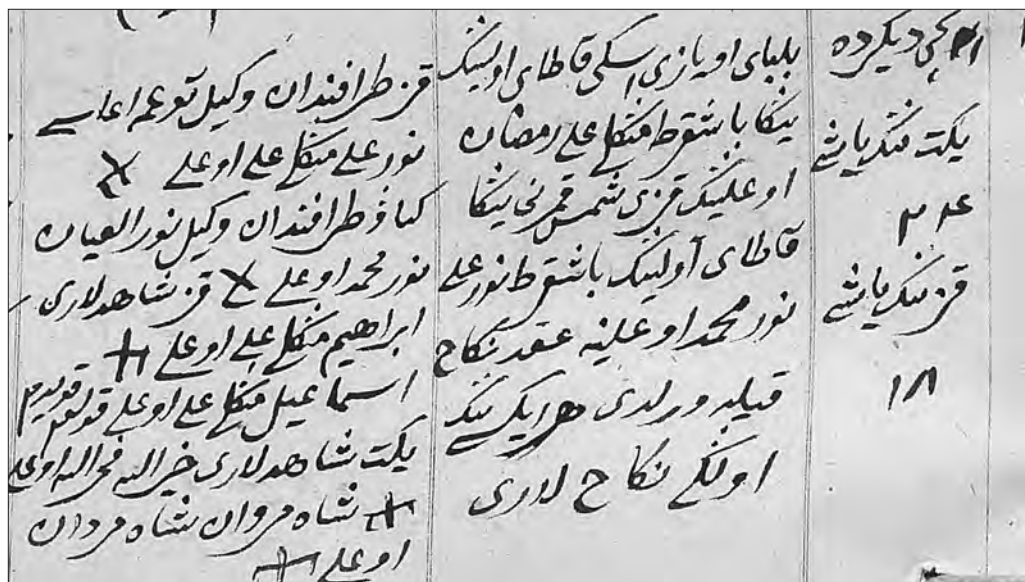 نچی دیکرده
یکت ننک یاشی
قز ننک یاشی
١٨
بلبای اویازی اسکی قاطای اولیننک
ینکا باشقرط منکلی علی رمضان
اوغلیننک قزی شمس قمرنی ینکا
قاطای آولیننک باشقرط نور علی
نور محمد اوغلینه عقد نکاح
قیلنه ورلدی هر ایکی ننک
اولکی نکاح لاری
قز طرافندان وکیل توغم اغاسی
نور علی منکلی علی اوغلی
کیاو طرافندان وکیل نور العیان
نور محمد اوغلی قز شاهدلاری
ابراهیم منکلی علی اوغلی
اسماعیل منکلی علی اوغلی قولم قویدم
یکت شاهدلاری خیر الله فخر الله اوغلی
شاه مروان شاه مردان
اوغلی